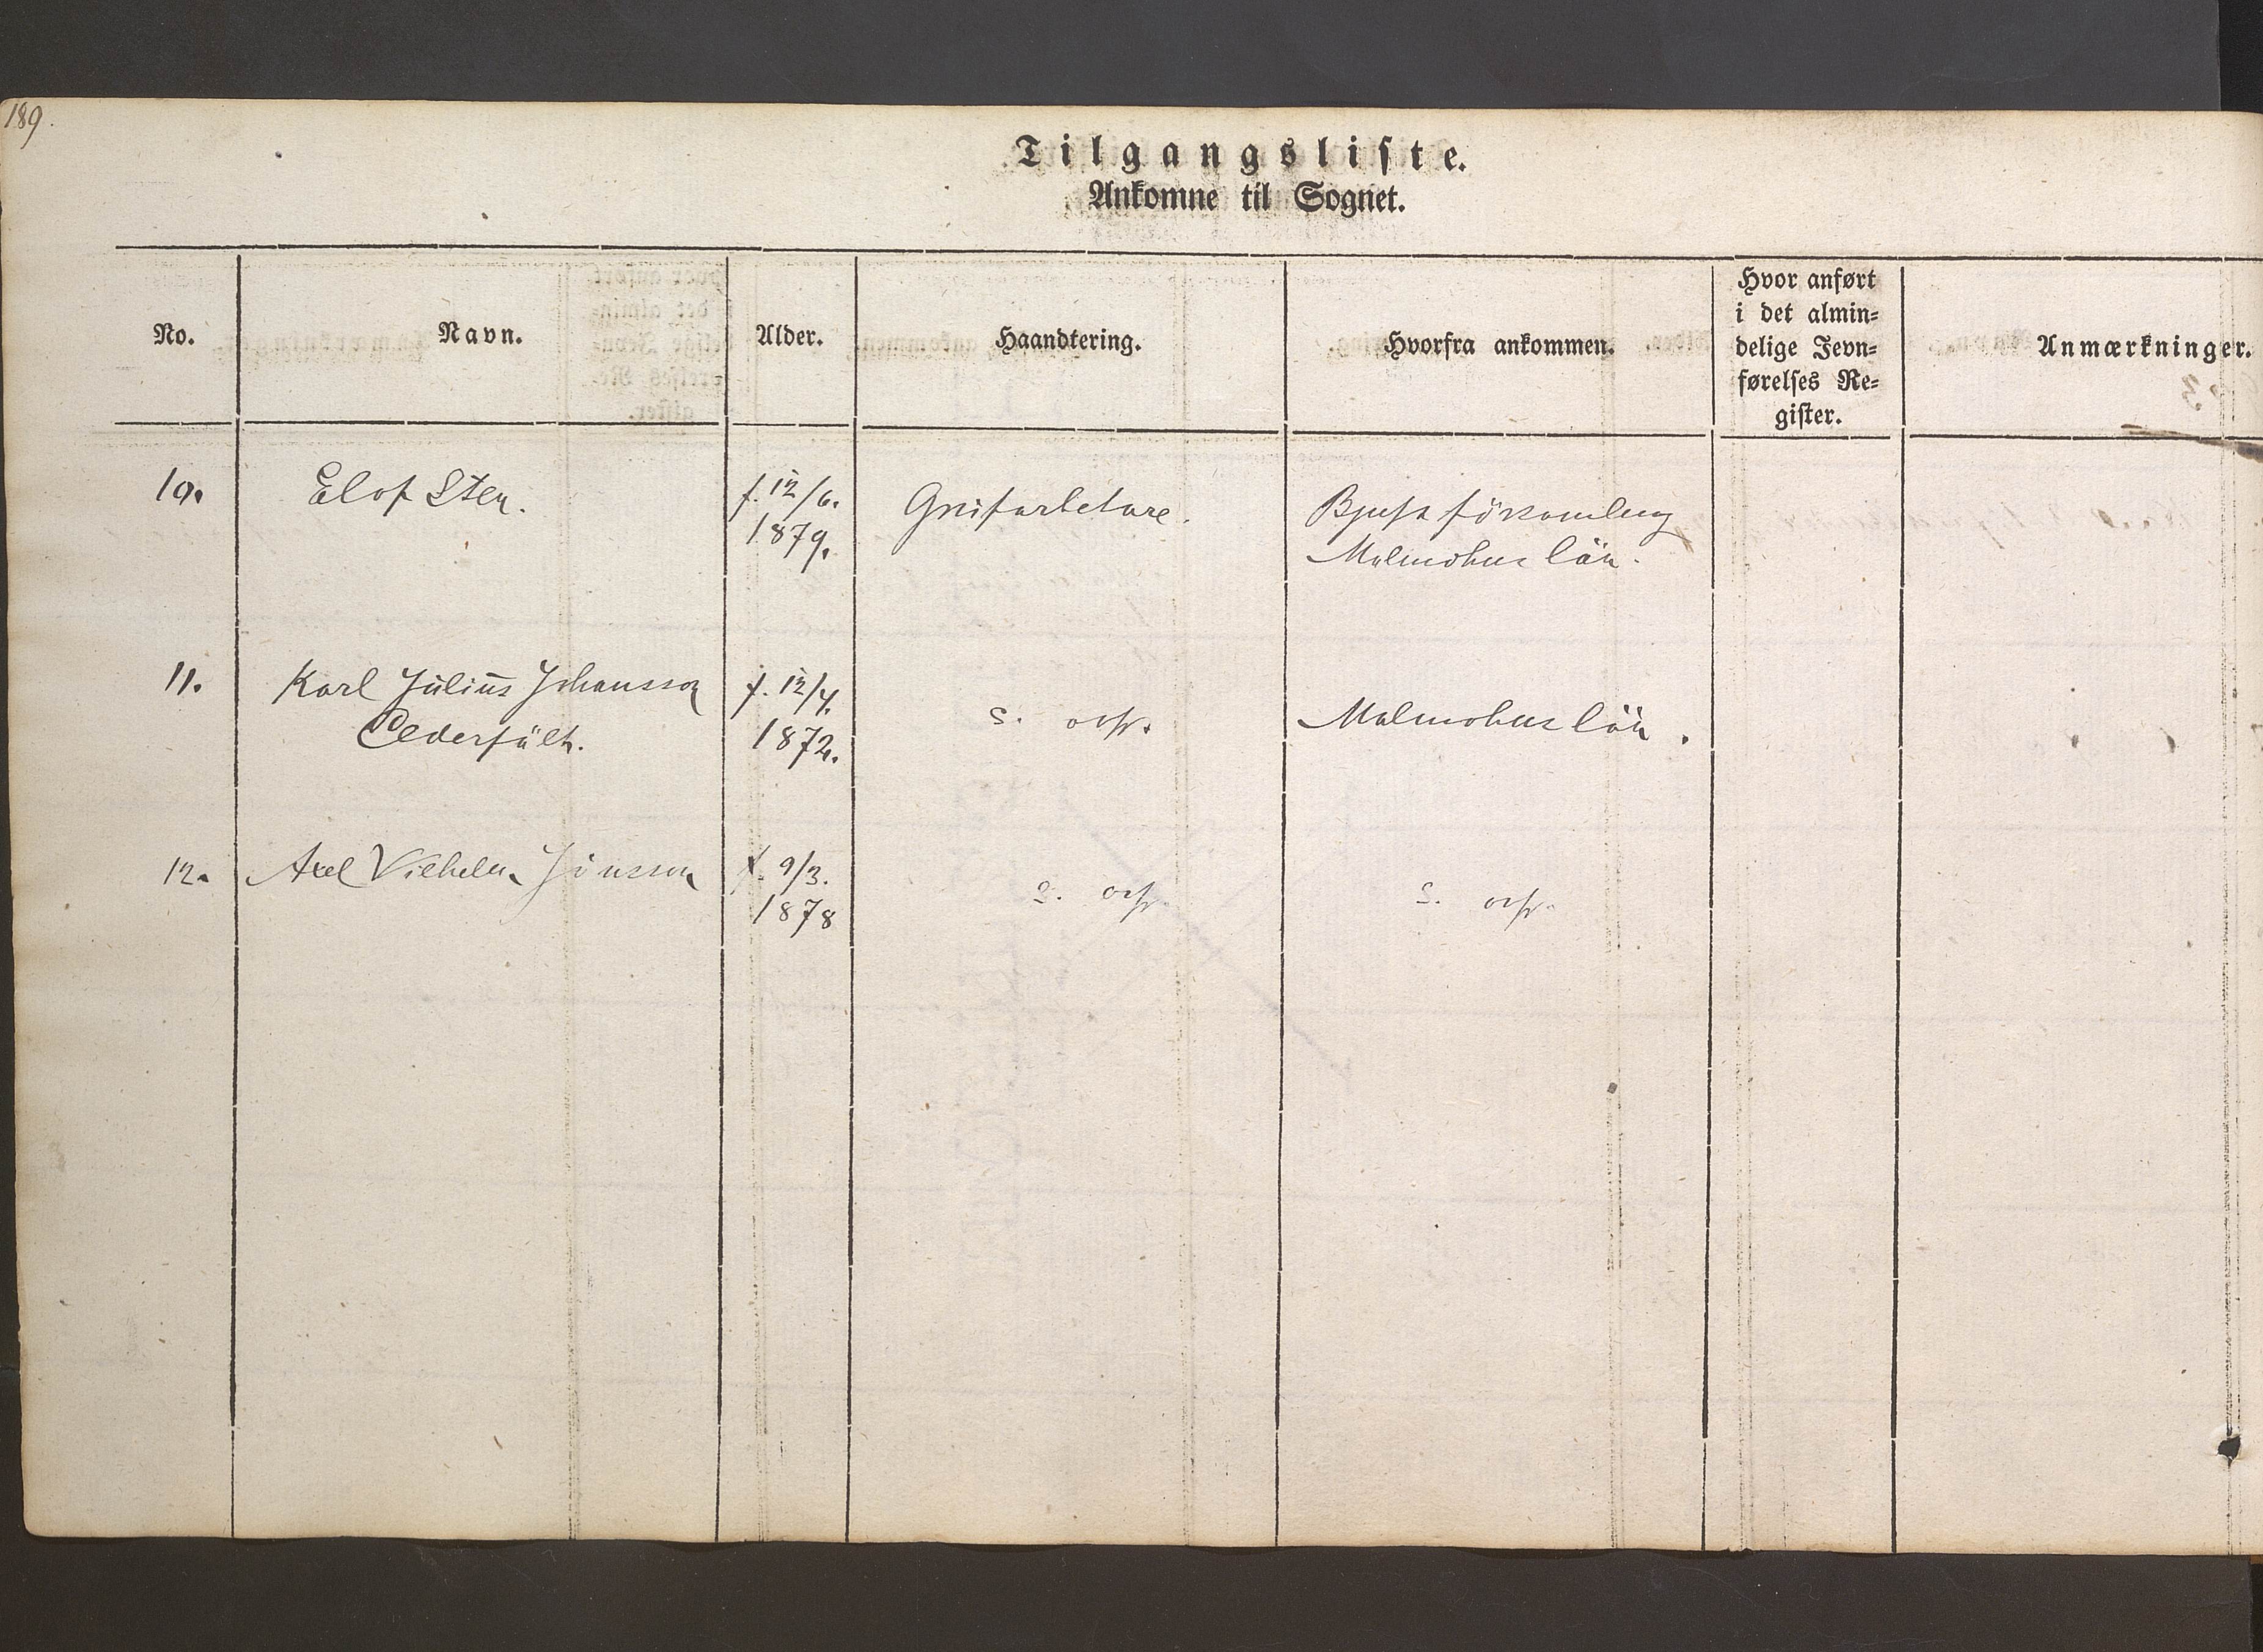 189.
Tilgangsliste.
Ankomne til Sognet.
No.
Navn.
Alder.
Haandtering.
Hvorfra ankommen.
Hvor anført
i det almin=
delige Jevn=
førelses Re=
gister.
Anmærkninger.
10.
Elof Sten.
f. 12/6.
1879.
Grufarbetare.
församling
Malmöhus län.
11.
Karl Julius Johansson
Cederfält.
f. 12/4.
1872.
s. ofv.
Malmohus län.
12.
Axel Vilhelm Jönsson
f. 9/3.
1878
s. ofv.
s. ofv.